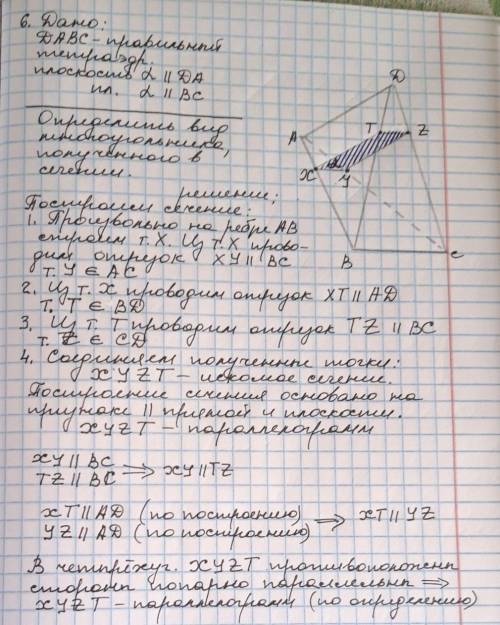 6. Дано:
DABC – правильный
тетраэдр.
плоскость α || DA
пл. α || BC
Определить вид
многоугольника,
полученного в
сечении.
решение;
Построим сечение:
1. Произвольно на ребре AB
ставим т. X. Из т. X прово-
дим отрезок XY || BC
т. Y ∈ AC
2. Из т. X проводим отрезок XT || AD
т. T ∈ BD
3. Из т. T проводим отрезок TZ || BC
т. Z ∈ CD
4. Соединяем полученные точки:
XYZT – искомое сечение.
Построение сечения основано на
признаке || прямой и плоскости.
XYZT – параллелограмм
XY || BC
TZ || BC ⇒ XY || TZ
XT || AD (по построению)
YZ || AD (по построению) ⇒ XT || YZ
В четырёхуг. XYZT противоположны
стороны попарно параллельны ⇒
XYZT – параллелограмм (по определению)
D
A
T
Z
X
α
Y
B
C